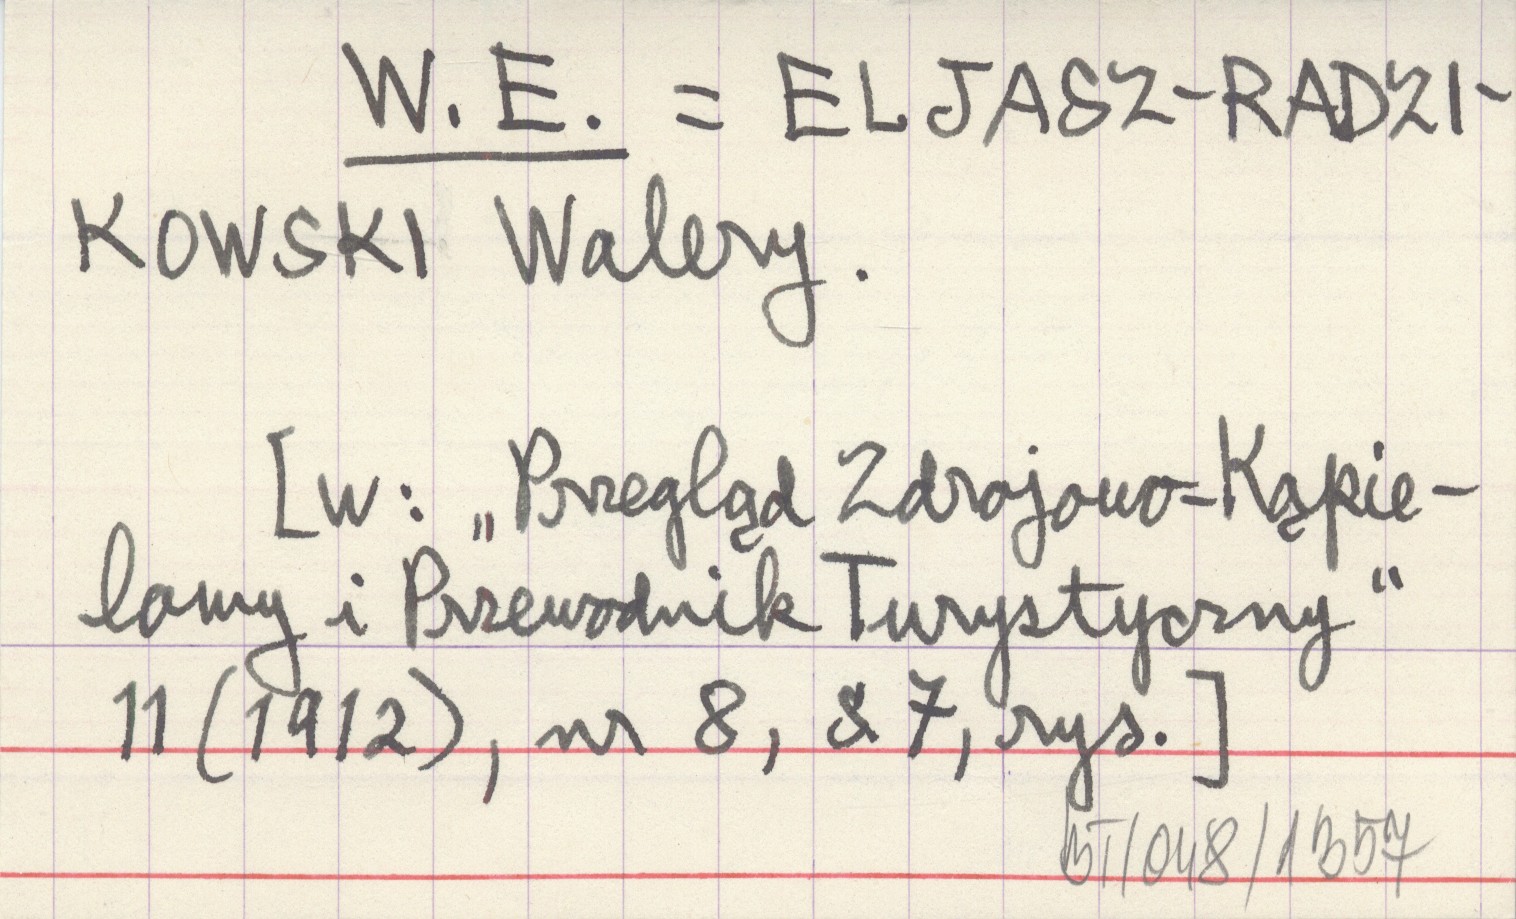 W. E. = ELJASZ-RADZI-
KOWSKI Walery.
[w: „Przegląd Zdrojowo-Kąpie-
lowy i Przewodnik Turystyczny“
11 (1912), nr 8, s 7, rys.]
BT/048/1357